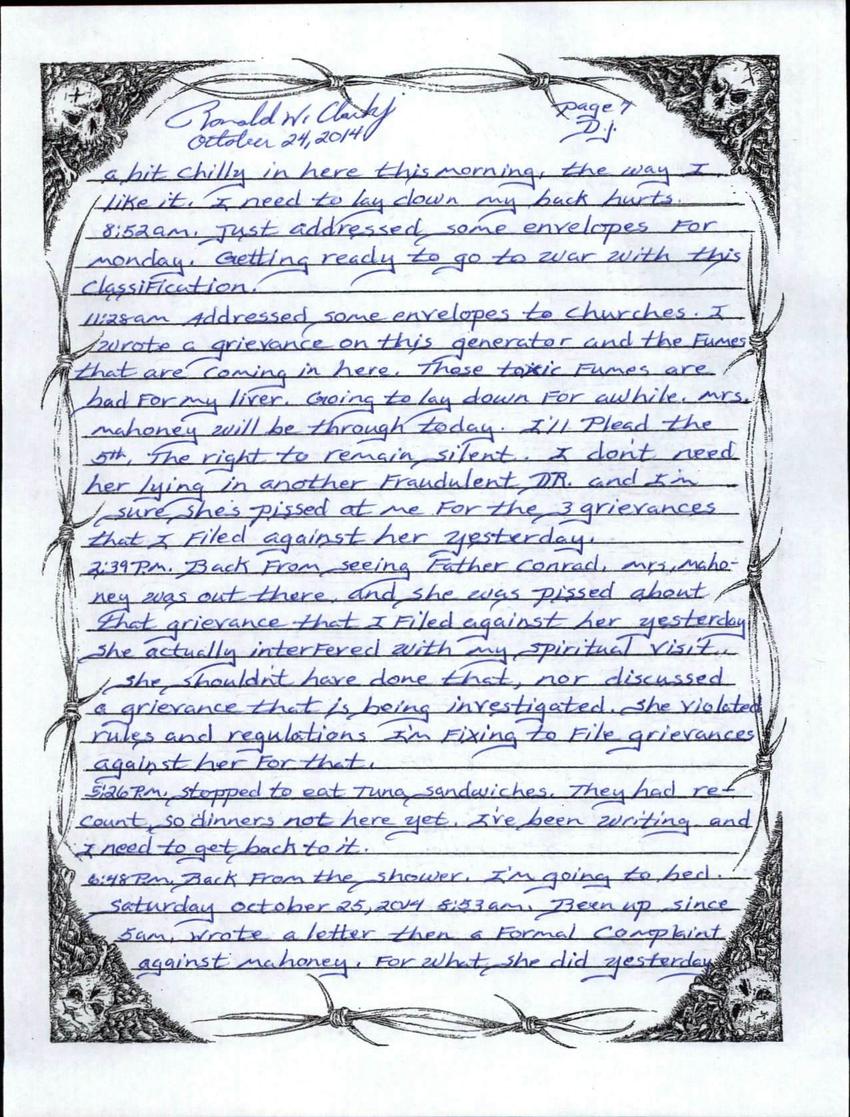 Ronald W. Clark Jr
page 7
October 24, 2014
D.J.
a bit chilly in here this morning, the way I
like it. I need to lay down my back hurts.
8:52am. Just addressed some envelopes For
monday. Getting ready to go to war with this
Classification.
11:28am Addressed some envelopes to Churches. I
wrote a grievance on this generator and the Fumes
that are coming in here. These toxic Fumes are
bad For my liver. Going to lay down For awhile. mrs.
mahoney will be through today. I'll Plead the
5th, The right to remain silent. I don't need
her lying in another Fraudulent DR. and I'm
sure she's pissed at me For the 3 grievances
that I Filed against her yesterday.
2:39Pm. Back From seeing Father Conrad, mrs, maho-
ney was out there, and she was pissed about
that grievance that I Filed against her yesterday
she actually interfered with my spiritual visit..
she shouldn't have done that, nor discussed
a grievance that is being investigated. she violated
rules and regulations I'm Fixing to File grievances
against her For that.
5:26Pm. stopped to eat Tuna sandwiches. They had re-
count, so dinners not here yet. I've been writing and
I need to get back to it.
6:48Pm. Back From the shower. I'm going to bed.
Saturday October 25, 2014 5:53am. Been up since
5am, wrote a letter then a Formal Complaint
against mahoney. For what she did yesterday